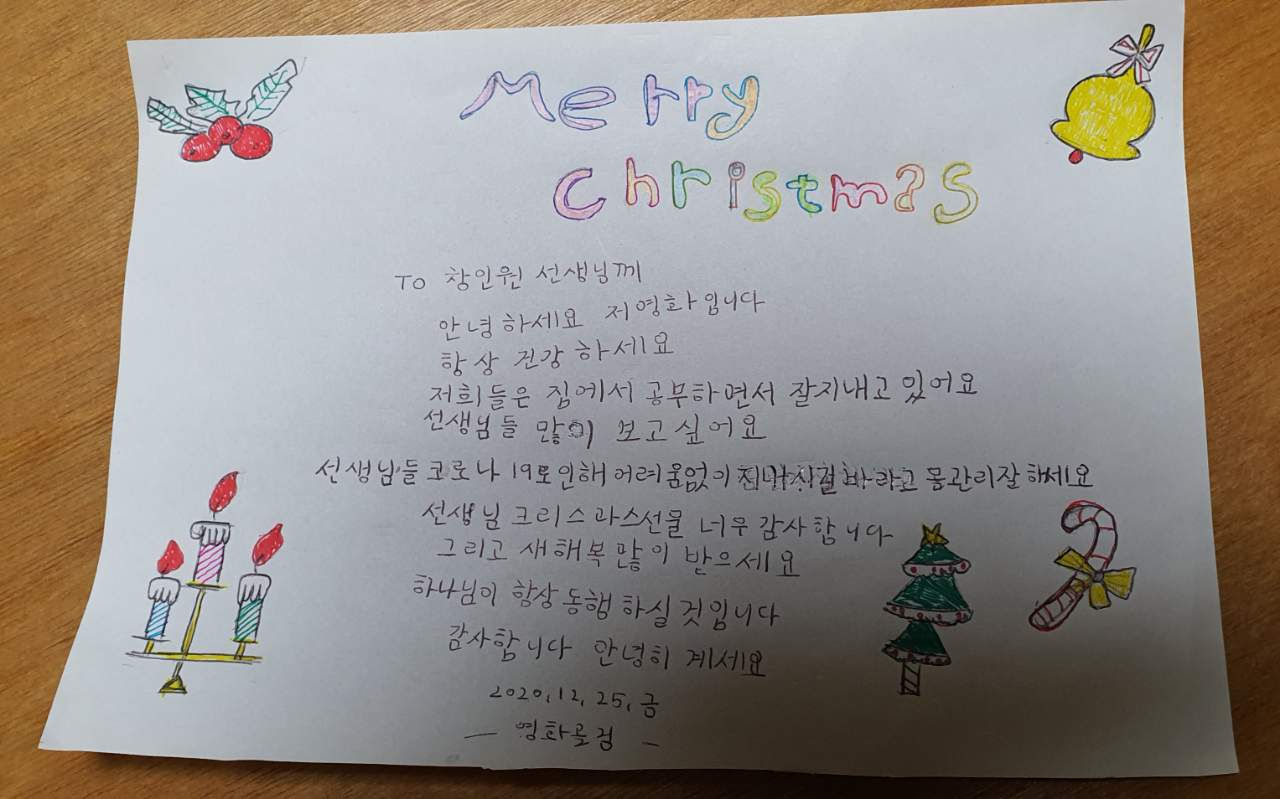 Merry
Christmas
TO 창인원 선생님께
안녕하세요 저영화입니다
항상 건강 하세요
저희들은 집에서 공부하면서 잘지내고 있어요
선생님들 많이 보고싶어요
선생님들 코로나 19로인해 어려움없이 바라고 몸관리잘 하세요
선생님 크리스마스선물 너무 감사합니다
그리고 새해복 많이 받으세요
하나님이 항상 동행 하실 것입니다
감사합니다 안녕히 계세요
2020, 12, 25, 금